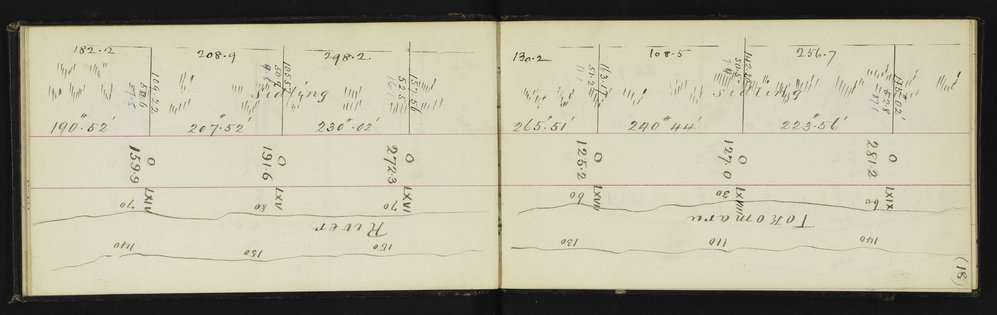 182.2 208.9 298.2
Sidling
190°.52' 207°.52' 230°.02'
O O O
159.9 191.6 272.3
LXIV LXV LXVI
70 80 70
River
140 150 150
130.2 108.5 256.7
Sidling
265°.51' 240° 44' 223°.56'
O O O
125.2 127.0 281.2
LXVII LXVIII LXIX
60 30 60
Tokomaru
130 110 140
(18)